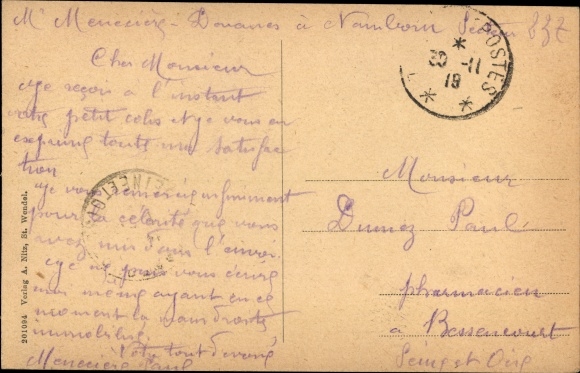 Mr Menecière - Douanes à Namborn Secteur 837
Cher Monsieur
Je reçois à l'instant
votre petit colis et je vous en
exprime toute ma satisfac
tion
Je vous remercie infiniment
pour la célérité que vous
avez mis dans l'envoi.
Je ne puis vous écrire
moi même ayant en ce
moment la main droite
immobilisée.
Votre tout dévoué
Menecière Paul
201094 Verlag A. Nitz, St. Wendel.
POSTES
30 -11
19
Monsieur
Dumez Paul
pharmacien
à Bessancourt
Seine et Oise